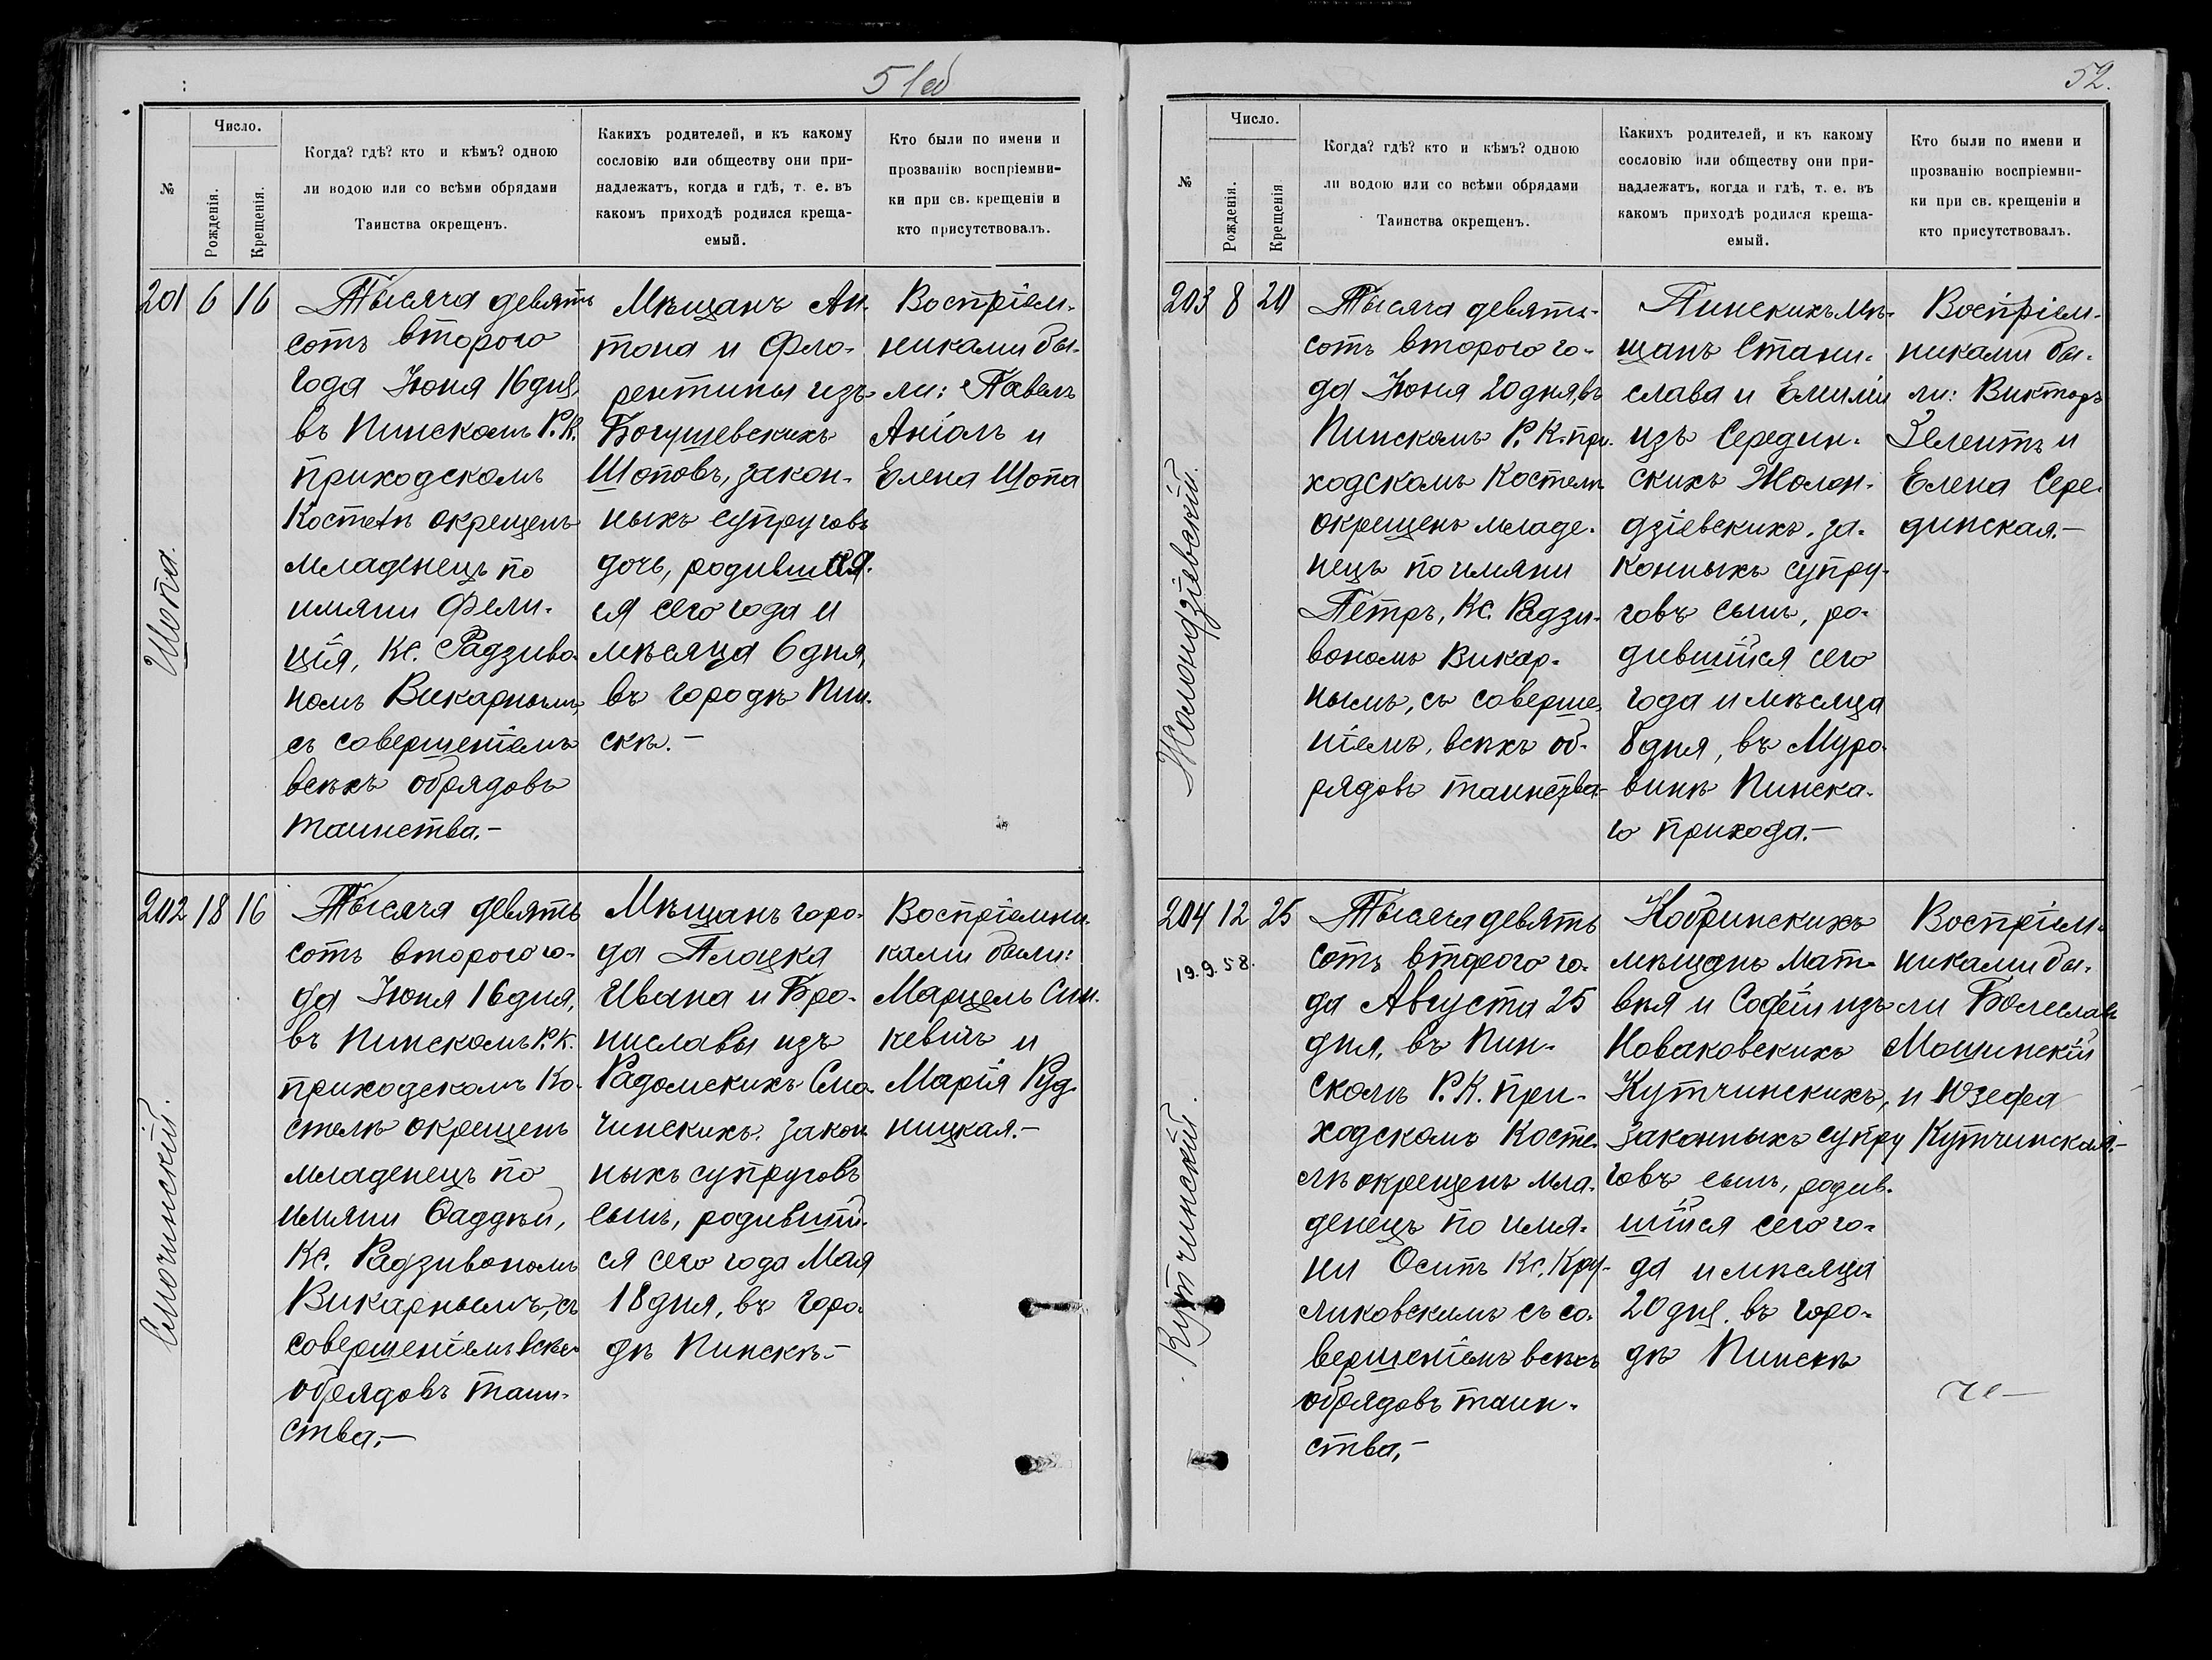 51об
№
Число.
Рожденія.
Крещенія.
Когда? гдѣ? кто и кѣмъ? одною
ли водою или со всѣми обрядами
Таинства окрещенъ.
Какихъ родителей, и къ какому
сословію или обществу они при-
надлежатъ, когда и гдѣ, т. е. въ
какомъ приходѣ родился креща-
емый.
Кто были по имени и
прозванію воспріемни-
ки при св. крещеніи и
кто присутствовалъ.
201 6 16
Шопа.
Тысяча девять
сотъ второго
года Іюня 16 дня,
въ Пинскомъ Р. К.
приходскомъ
Костелѣ окрещенъ
младенецъ по
имяни Фели-
ція, Кс. Радзиво-
номъ Викарнымъ,
съ совершеніемъ
всѣхъ обрядовъ
таинства.—
Мѣщанъ Ан-
тона и Фло-
рентины изъ
Богушевскихъ
Шоповъ, закон-
ныхъ супруговъ
дочь, родившая-
ся сего года и
мѣсяца 6 дня,
въ городѣ Пин-
скѣ.—
Воспріем-
никами бы-
ли: Павелъ
Аніолъ и
Елена Шопа
202 18 16
Смочинскій.
Тысяча девять
сотъ второго го-
да Іюня 16 дня,
въ Пинскомъ Р. К.
приходскомъ Ко-
стелѣ окрещенъ
младенецъ по
имяни Ѳаддѣй,
Кс. Радзивономъ
Викарнымъ, съ
совершеніемъ всѣхъ
обрядовъ таин-
ства.—
Мѣщанъ горо-
да Плоцка
Ивана и Бро-
ниславы изъ
Радомскихъ Смо-
чинскихъ. закон
ныхъ супруговъ
сынъ, родившій-
ся сего года Мая
18 дня, въ горо-
дѣ Пинскѣ.—
Воспріемни-
ками были:
Марцелъ Син-
кевичъ и
Марія Руд-
ницкая.—
52.
№
Число.
Рожденія.
Крещенія
Когда? гдѣ? кто и кѣмъ? одною
ли водою или со всѣми обрядами
Таинства окрещенъ.
Какихъ родителей, и къ какому
сословію или обществу они при-
надлежатъ, когда и гдѣ, т. е. въ
какомъ приходѣ родился креща-
емый.
Кто были по имени и
прозванію воспріемни-
ки при св. крещеніи и
кто присутствовалъ.
203 8 20
Жолондзіевскій.
Тысяча девять-
сотъ второго го-
да Іюня 20 дня, въ
Пинскомъ Р. К. при-
ходскомъ Костелѣ
окрещенъ младе-
нецъ по имяни
Петръ, Кс. Радзи-
вономъ Викар-
нымъ, съ соверше-
ніемъ, всѣхъ об-
рядовъ таинства—
Пинскихъ мѣ-
щанъ Стани-
слава и Емиліи
изъ Середин-
скихъ Жолон-
дзіевскихъ. за-
конныхъ супру-
говъ сынъ, ро-
дившійся сего
года и мѣсяца
8 дня, въ Муро-
винѣ Пинска-
го прихода.—
Воспріем-
никами бы-
ли: Викторъ
Зелентъ и
Елена Сере-
динская.—
204 12 25
19.9.58.
Кутчинскій.
Тысяча девять
сотъ второго го-
да Августа 25
дня, въ Пин-
скомъ Р. К. при-
ходскомъ Косте-
лѣ окрещенъ мла-
денецъ по имя-
ни Осипъ Кс. Кру-
ликовскимъ съ со-
вершеніемъ всѣхъ
обрядовъ таин-
ства,—
Кобринскихъ
мѣщанъ Мат-
вѣя и Софіи изъ
Новаковскихъ
Кутчинскихъ,
законныхъ супру
говъ сынъ, родив-
шійся сего го-
да и мѣсяца
20 дня. въ горо-
дѣ Пинскѣ
Воспріем-
никами бы-
ли Болеславъ
Мошинскій
и Юзефа
Кутчинская.—